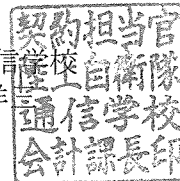 契約担当官
陸上自衛隊
通信学校
会計課長印
学校